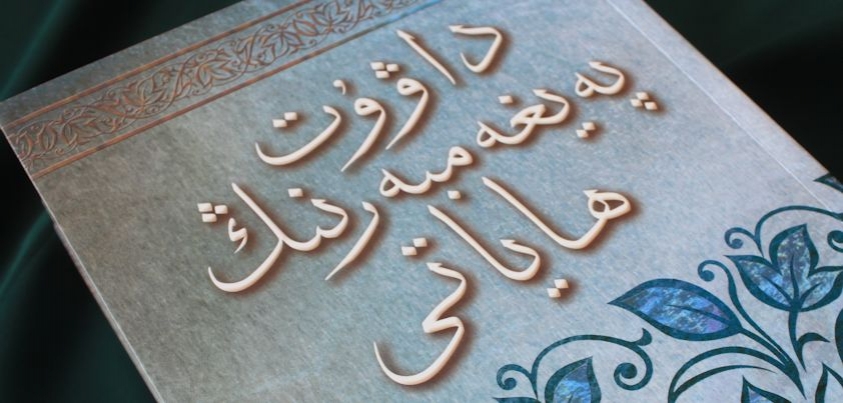 داۋۇت
پەيغەمبەرنىڭ
ھاياتى